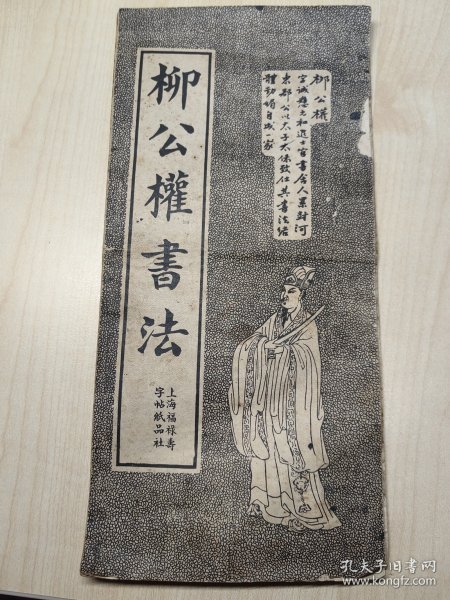 柳公權
字誠懸元和進士官書舍人累封河
東郡公以太子太保致仕其書法结
體勁媚自成一家
柳公權書法
上海福祿壽
字帖紙品社
孔夫子旧书网
www.kongfz.com